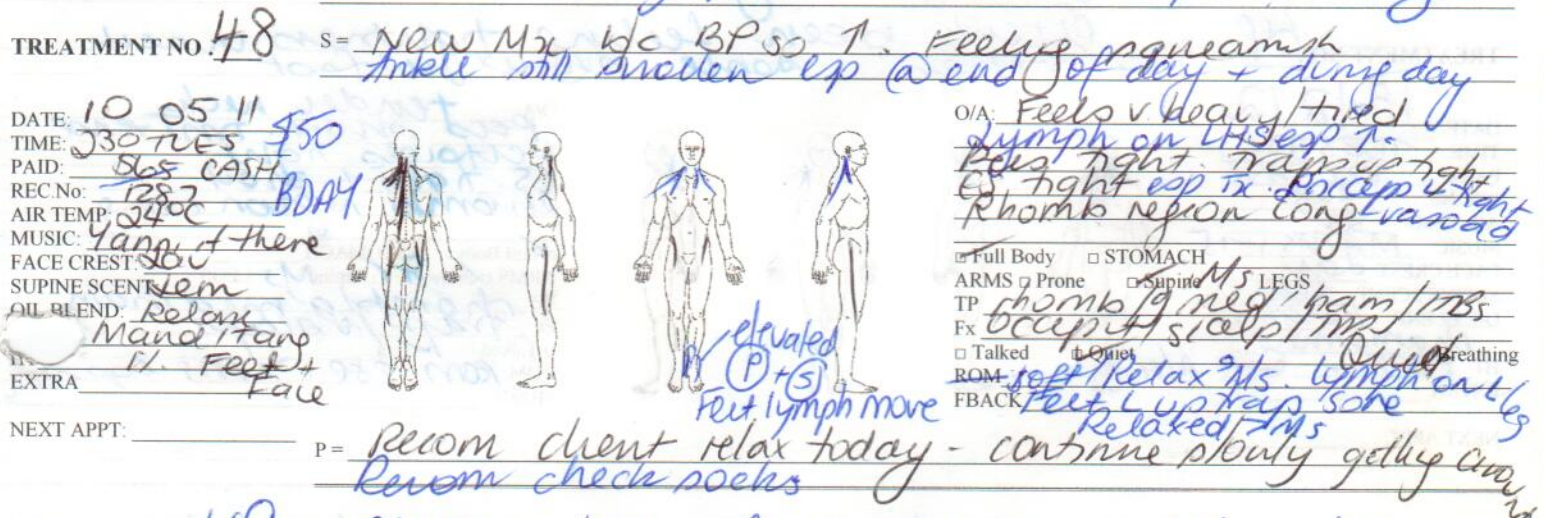 TREATMENT NO. 48
S= New Mx b/c BP so ↑. Feeling squeamish
Ankle still swollen esp @ end of day + during day
DATE: 10 05 11
TIME: 230 TUES $50
PAID: $65 CASH
REC.No: 1287 BDAY
AIR TEMP: 24°C
MUSIC: Yanni
FACE CREST:
SUPINE SCENT: Lem
OIL BLEND: Relax
Mand / Tang
Feet +
EXTRA Face
NEXT APPT:
elevated
P + S
Feet lymph move
O/A: Feels v heavy / tired
Lymph on LHS esp ↑.
Pecs tight. traps up tight
ES tight esp Tx. tight
Rhomb region long
Full Body STOMACH
ARMS Prone Supine Ms LEGS
TP rhomb / g med / ham /
Fx Occiput / scalp /
Talked Quiet Quiet Breathing
ROM soft / Relax Ms. Lymph on L leg
FBACK Feet L up trap sore
Relaxed Ms
P= Recom client relax today - continue slowly getting
Recom check socks